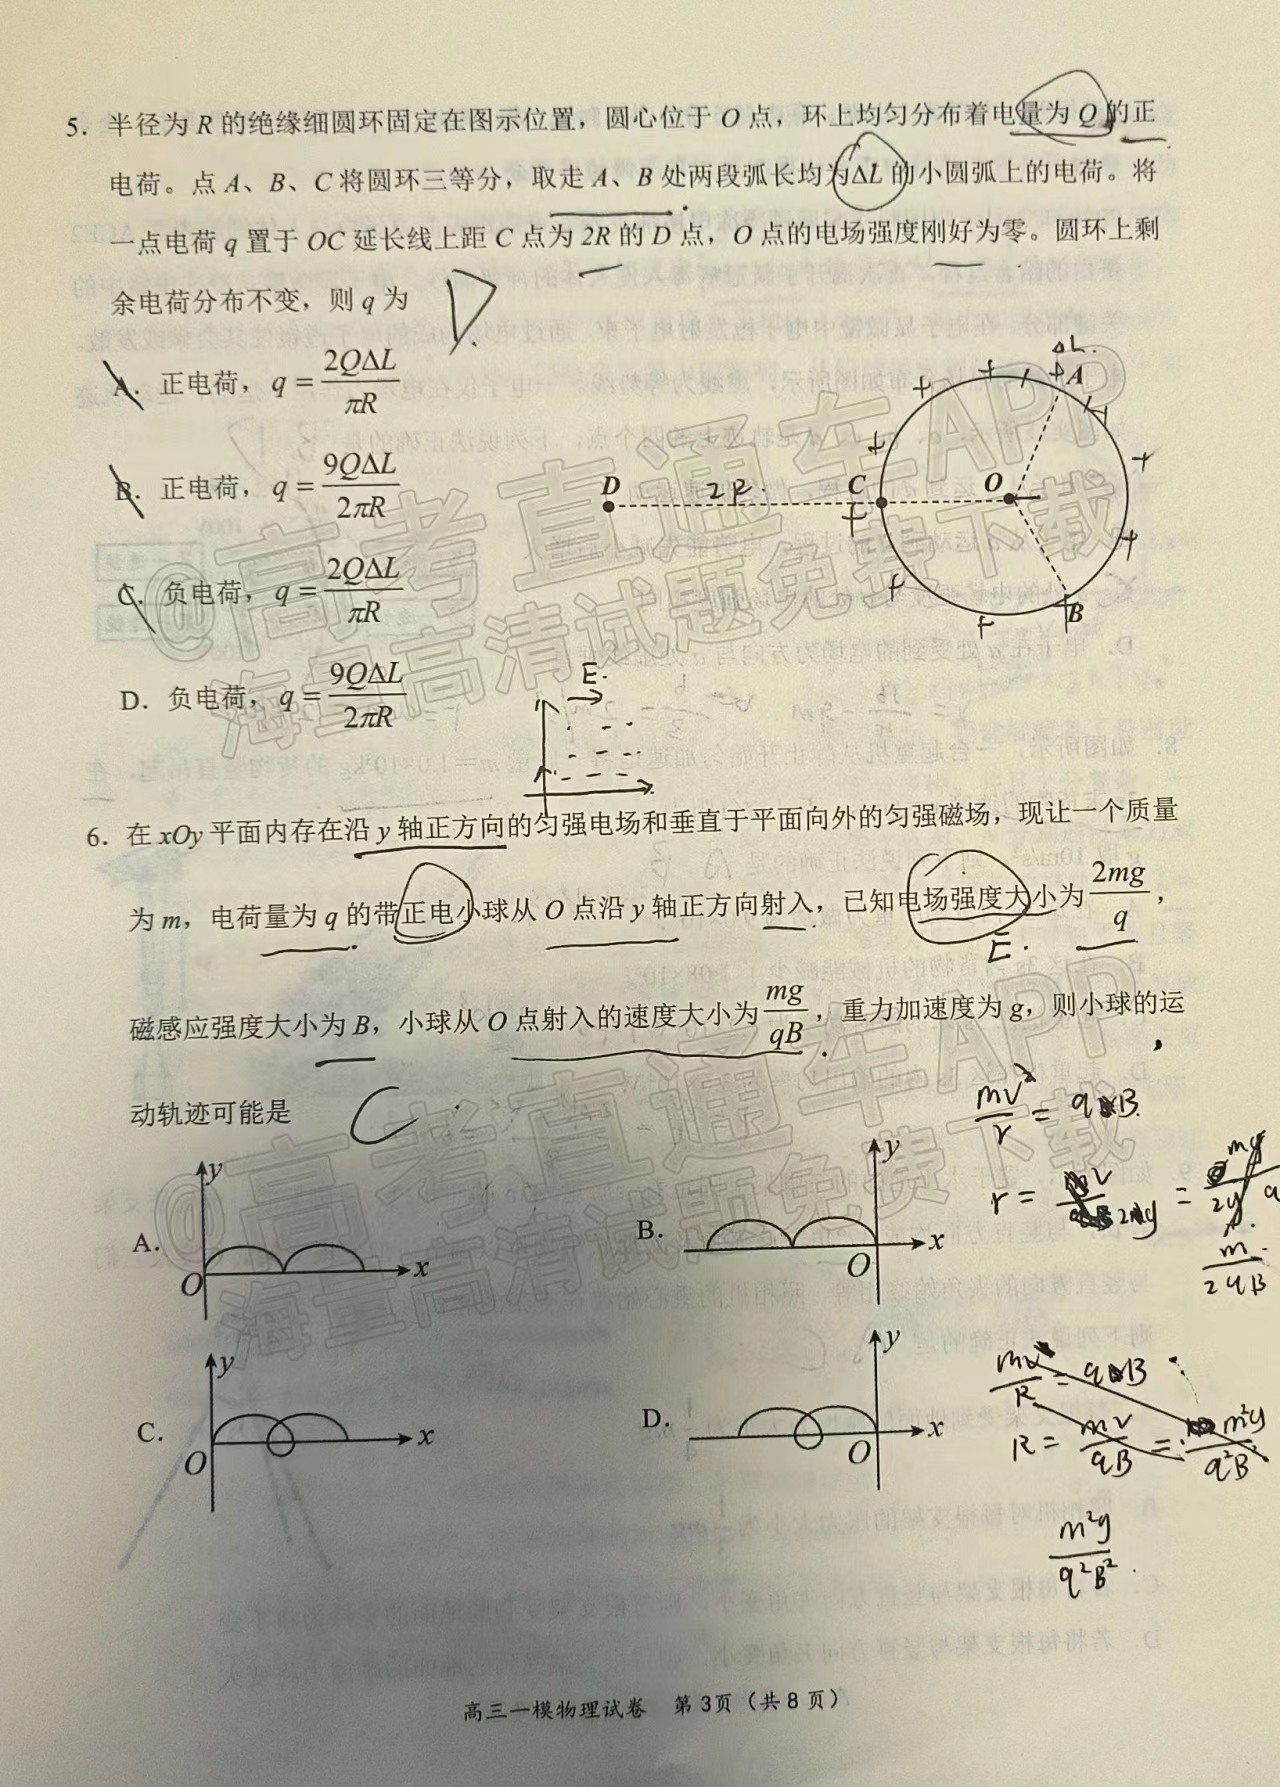 5. 半径为 R 的绝缘细圆环固定在图示位置，圆心位于 O 点，环上均匀分布着电量为 Q 的正
电荷。点 A、B、C 将圆环三等分，取走 A、B 处两段弧长均为 ΔL 的小圆弧上的电荷。将
一点电荷 q 置于 OC 延长线上距 C 点为 2R 的 D 点，O 点的电场强度刚好为零。圆环上剩
余电荷分布不变，则 q 为
D
A. 正电荷，q = 2QΔL/πR
B. 正电荷，q = 9QΔL/2πR
C. 负电荷，q = 2QΔL/πR
D. 负电荷，q = 9QΔL/2πR
ΔL.
A
D
2R.
C
O
B
E.
6. 在 xOy 平面内存在沿 y 轴正方向的匀强电场和垂直于平面向外的匀强磁场，现让一个质量
为 m，电荷量为 q 的带正电小球从 O 点沿 y 轴正方向射入，已知电场强度大小为 2mg/q，
E.
磁感应强度大小为 B，小球从 O 点射入的速度大小为 mg/qB，重力加速度为 g，则小球的运
动轨迹可能是
C
mv²/r = qvB
A.
y
O
x
B.
y
O
x
C.
y
O
x
D.
y
O
x
m/2qB
R = mv/qB = m²g/q²B²
m²g/q²B².
@高考直通车APP
海量高清试题免费下载
@高考直通车APP
海量高清试题免费下载
高三一模物理试卷 第3页（共8页）